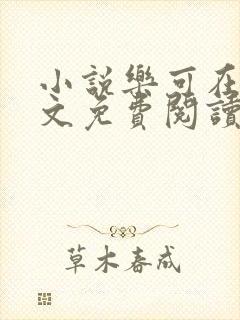 小說樂可在
文免費閱讀
草木春成